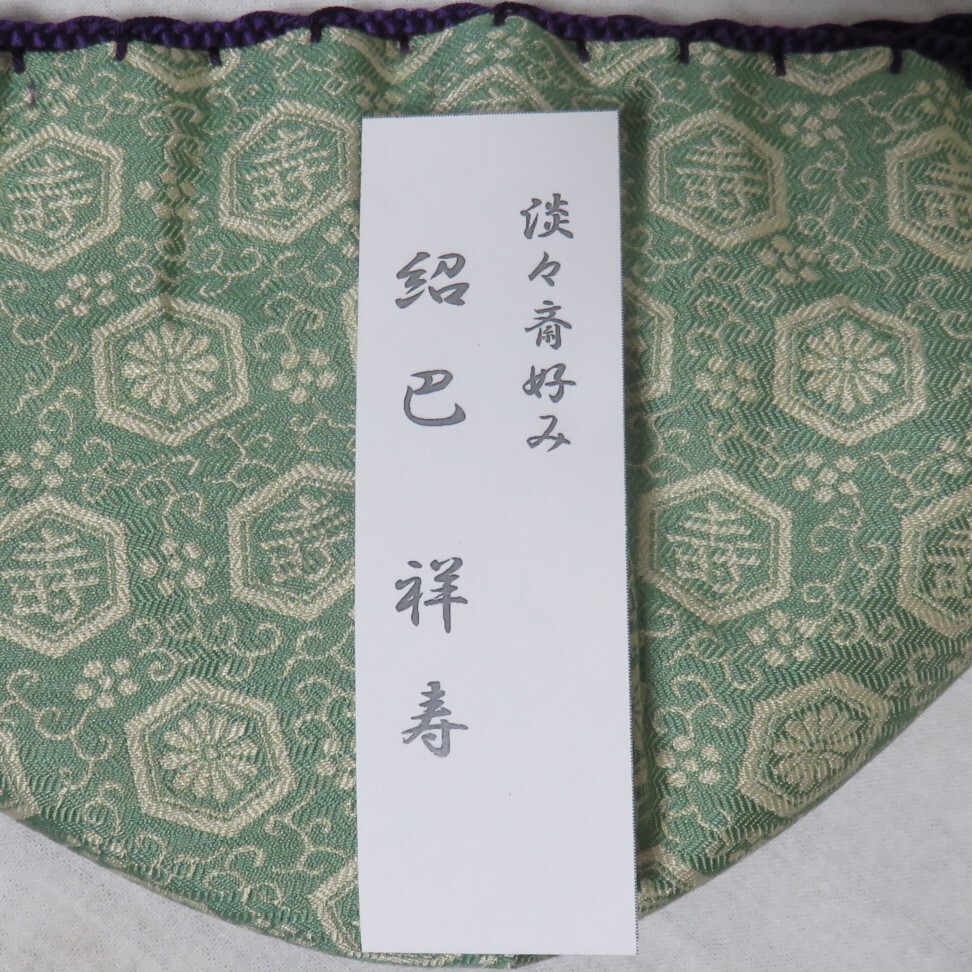 淡々斎好み
紹巴 祥寿